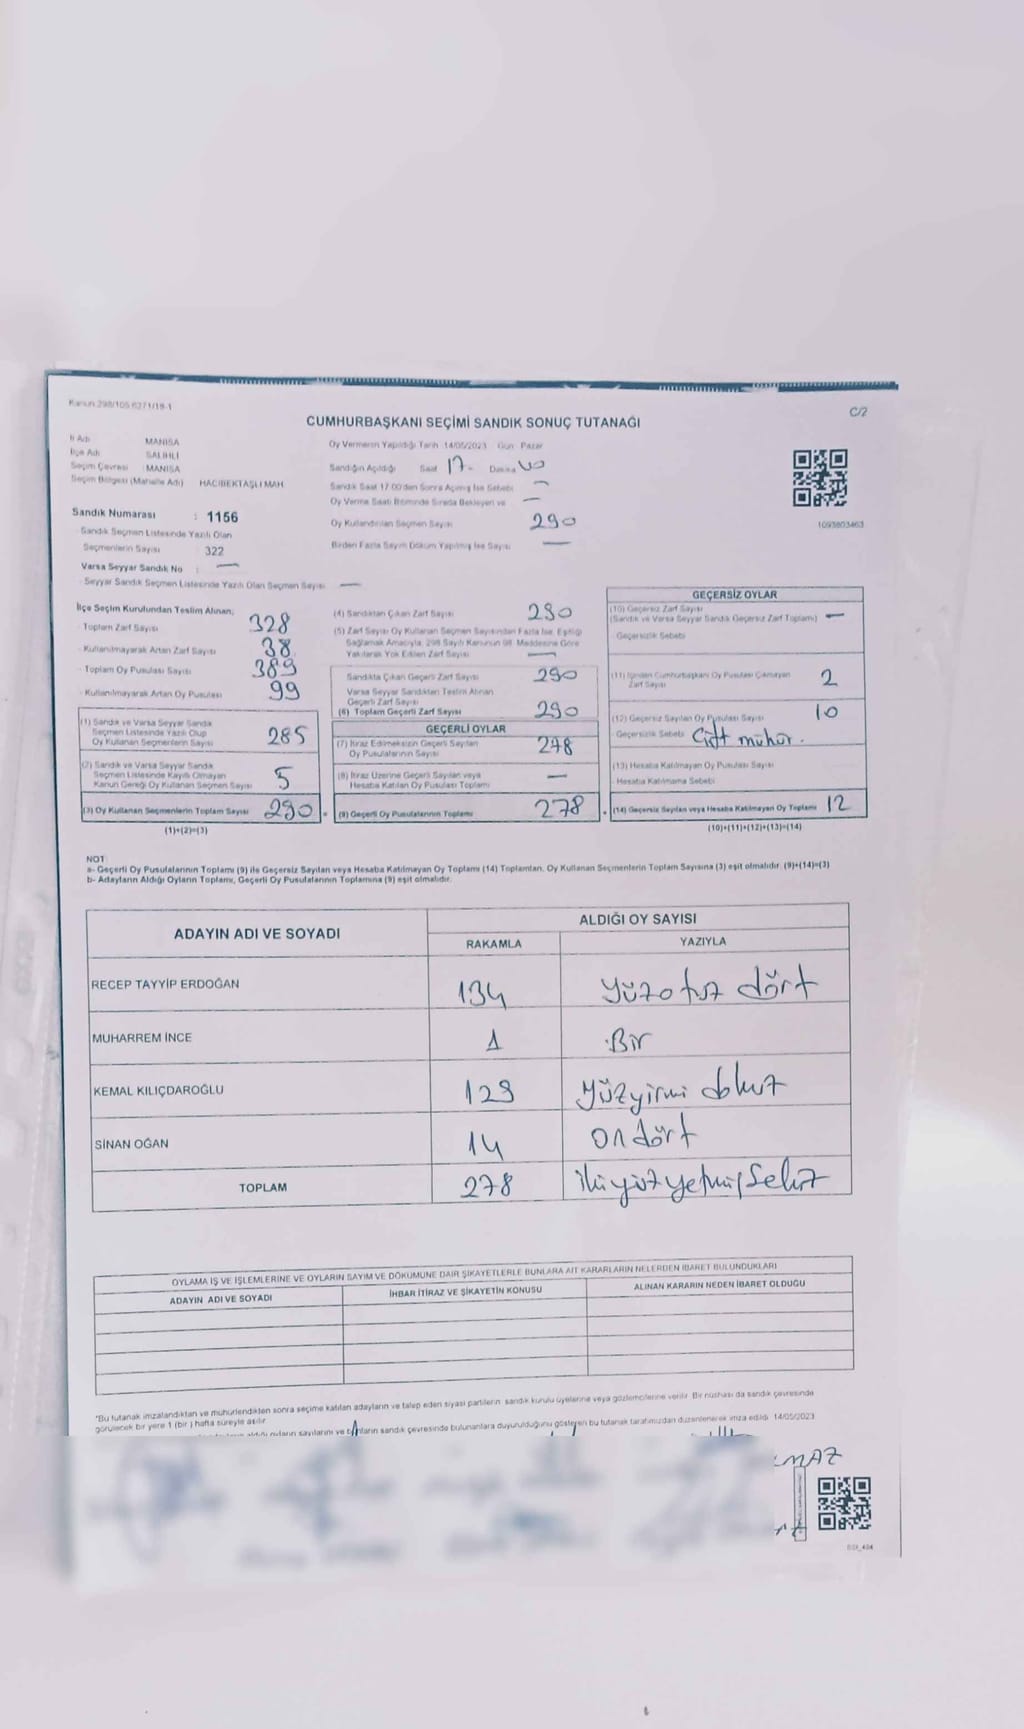 Kanun 298/105 6271/18-1
C/2
CUMHURBAŞKANI SEÇİMİ SANDIK SONUÇ TUTANAĞI
İl Adı MANİSA
İlçe Adı SALİHLİ
Seçim Çevresi : MANİSA
Seçim Bölgesi (Mahalle Adı) HACIBEKTAŞLI MAH
Sandık Numarası : 1156
Sandık Seçmen Listesinde Yazılı Olan
Seçmenlerin Sayısı 322
Varsa Seyyar Sandık No : —
- Seyyar Sandık Seçmen Listesinde Yazılı Olan Seçmen Sayısı —
Oy Vermenin Yapıldığı Tarih 14/05/2023 Gün Pazar
Sandığın Açıldığı Saat 17- Dakika
Sandık Saat 17:00'den Sonra Açılmış İse Sebebi —
Oy Verme Saati Bitiminde Sırada Bekleyen ve —
Oy Kullandırılan Seçmen Sayısı 290
Birden Fazla Sayım Döküm Yapılmış İse Sayısı —
1093803463
İlçe Seçim Kurulundan Teslim Alınan;
- Toplam Zarf Sayısı 328
- Kullanılmayarak Artan Zarf Sayısı 38
- Toplam Oy Pusulası Sayısı 389
- Kullanılmayarak Artan Oy Pusulası 99
(1) Sandık ve Varsa Seyyar Sandık
Seçmen Listesinde Yazılı Olup
Oy Kullanan Seçmenlerin Sayısı 285
(2) Sandık ve Varsa Seyyar Sandık
Seçmen Listesinde Kayıtlı Olmayan
Kanun Gereği Oy Kullanan Seçmen Sayısı 5
(3) Oy Kullanan Seçmenlerin Toplam Sayısı 290 =
(1)+(2)=(3)
(4) Sandıktan Çıkan Zarf Sayısı 290
(5) Zarf Sayısı Oy Kullanan Seçmen Sayısından Fazla İse, Eşitliği
Sağlamak Amacıyla, 298 Sayılı Kanunun 98. Maddesine Göre
Yakılarak Yok Edilen Zarf Sayısı —
Sandıkta Çıkan Geçerli Zarf Sayısı 290
Varsa Seyyar Sandıktan Teslim Alınan
Geçerli Zarf Sayısı
(6) Toplam Geçerli Zarf Sayısı 290
GEÇERLİ OYLAR
(7) İtiraz Edilmeksizin Geçerli Sayılan
Oy Pusulalarının Sayısı 278
(8) İtiraz Üzerine Geçerli Sayılan veya
Hesaba Katılan Oy Pusulası Toplamı —
(9) Geçerli Oy Pusulalarının Toplamı 278 +
GEÇERSİZ OYLAR
(10) Geçersiz Zarf Sayısı
(Sandık ve Varsa Seyyar Sandık Geçersiz Zarf Toplamı) —
- Geçersizlik Sebebi
(11) İçinden Cumhurbaşkanı Oy Pusulası Çıkmayan
Zarf Sayısı 2
(12) Geçersiz Sayılan Oy Pusulası Sayısı 10
- Geçersizlik Sebebi Çift mühür.
(13) Hesaba Katılmayan Oy Pusulası Sayısı
- Hesaba Katılmama Sebebi
(14) Geçersiz Sayılan veya Hesaba Katılmayan Oy Toplamı 12
(10)+(11)+(12)+(13)=(14)
NOT
a- Geçerli Oy Pusulalarının Toplamı (9) ile Geçersiz Sayılan veya Hesaba Katılmayan Oy Toplamı (14) Toplamları, Oy Kullanan Seçmenlerin Toplam Sayısına (3) eşit olmalıdır. (9)+(14)=(3)
b- Adayların Aldığı Oyların Toplamı, Geçerli Oy Pusulalarının Toplamına (9) eşit olmalıdır.
ADAYIN ADI VE SOYADI ALDIĞI OY SAYISI
RAKAMLA YAZIYLA
RECEP TAYYİP ERDOĞAN 134 Yüzotuz dört
MUHARREM İNCE 1 Bir
KEMAL KILIÇDAROĞLU 129 Yüzyirmi dokuz
SİNAN OĞAN 14 On dört
TOPLAM 278 ikiyüzyetmişSekiz
OYLAMA İŞ VE İŞLEMLERİNE VE OYLARIN SAYIM VE DÖKÜMÜNE DAİR ŞİKAYETLERLE BUNLARA AİT KARARLARIN NELERDEN İBARET BULUNDUKLARI
ADAYIN ADI VE SOYADI İHBAR İTİRAZ VE ŞİKAYETİN KONUSU ALINAN KARARIN NEDEN İBARET OLDUĞU
"Bu tutanak imzalandıktan ve mühürlendikten sonra seçime katılan adayların ve talep eden siyasi partilerin sandık kurulu üyelerine veya gözlemcilerine verilir. Bir nüshası da sandık çevresinde
görülecek bir yere 1 (bir) hafta süreyle asılır.
aldığı oyların sayılarını ve bunların sandık çevresinde bulunanlara duyurulduğunu gösteren bu tutanak tarafımızdan düzenlenerek imza edildi 14/05/2023
MAZ